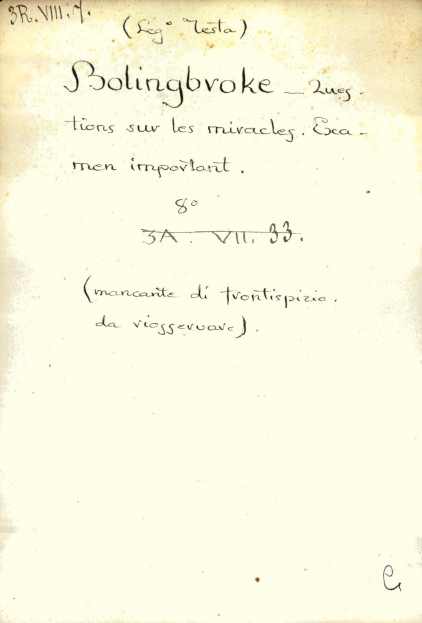 3R.VIII.7.
(Leg° Testa)
Bolingbroke — Ques-
tions sur les miracles. Exa-
men important.
8°
3A. VII. 33.
(mancante di frontispizio.
da riosservare).